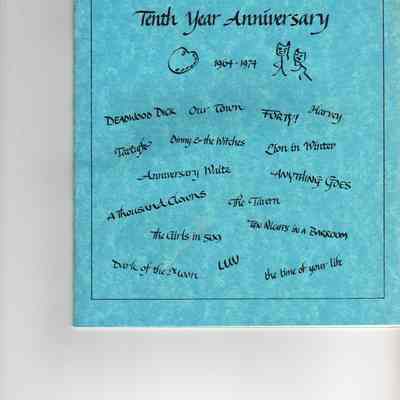 Tenth Year Anniversary
1964-1974
DEADWOOD DICK Our Town FORTY!! Harvey
Tartuffe Dinny & the Witches Lion in Winter
Anniversary Waltz ANYTHING GOES
A Thousand Clowns The Tavern
The Girls in 509 Ten Nights in a BARROOM
Dark of the Moon LUV the time of your life